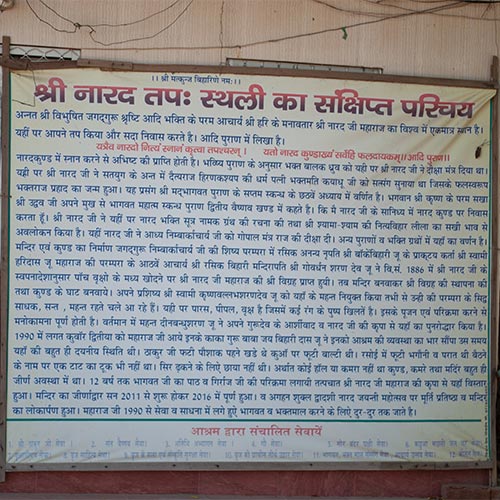 ।। श्री मत्कुन्ज बिहारिणे नमः।।
श्री नारद तपः स्थली का संक्षिप्त परिचय
अनन्त श्री विभुषित जगद्गुरू श्रृष्टि आदि भक्ति के परम आचार्य श्री हरि के मनावतार श्री नारद जी महाराज का विश्व में एकमात्र स्थान है।
यहीं पर आपने तप किया और सदा निवास करते है। आदि पुराण में लिखा है।
यत्रैव नारदो नित्यं स्नानं कृत्वा तपश्चरन्। यतो नारद कुण्डाख्यं सर्वेहि फलदायकम्।।आदि पुराण।।
नारदकुण्ड में स्नान करने से अभिष्ट की प्राप्ति होती है। भविष्य पुराण के अनुसार भक्त बालक ध्रुव को यही पर श्री नारद जी ने दीक्षा मंत्र दिया था।
यहीं पर श्री नारद जी ने सतयुग के अन्त में दैत्यराज हिरणकश्यप की धर्म पत्नी भक्तमति कयाधू जी को सत्संग सुनाया था जिसके फलस्वरूप
भक्तराज प्रहाद का जन्म हुआ। यह प्रसंग श्री मद्भागवत पुराण के सप्तम स्कन्ध के छठवें अध्याय में वर्णित है। भगवान श्री कृष्ण के परम सखा
श्री उद्धव जी अपने मुख से भागवत महात्म स्कन्ध पुराण द्वितीय वैष्णव खण्ड में कहते है। कि मै नारद जी के सानिध्य में नारद कुण्ड पर निवास
करता हूँ। श्री नारद जी ने यहीं पर नारद भक्ति सूत्र नामक ग्रंथ की रचना की तथा श्री श्यामा-श्याम की नित्यविहार लीला का सखी भाव से
अवलोकन किया है। यहीं नारद जी ने आध्य निम्वार्काचार्य जी को गोपाल मंत्र राज की दीक्षा दी। अन्य पुराणों व भक्ति ग्रंथों में यहाँ का वर्णन है।
मन्दिर एवं कुण्ड का निर्माण जगद्गुरू निम्वार्काचार्य जी की शिष्य परम्परा में रसिक अनन्य नृपति श्री बाँकेबिहारी जू के प्राकृट्य कर्ता श्री स्वामी
हरिदासु जू महाराज की परम्परा के आठवें आचार्य श्री रसिक बिहारी मन्दिरापति श्री गोवर्धन शरण देव जू ने वि.सं. 1886 में श्री नारद जी के
स्वपनादेशानुसार पाँच वृक्षो के मध्य खोदने पर श्री नारद जी महाराज की श्री विग्रह प्राप्त हुयी। तव मन्दिर बनवाकर श्री विग्रह की स्थापना की
तथा कुण्ड के घाट बनवाये। अपने प्रशिष्य श्री स्वामी कृष्णवल्लभशरणदेव जू को यहाँ के महन्त नियुक्त किया तभी से उन्ही की परम्परा के सिद्ध
साधक, सन्त, महन्त रहते चले आ रहे हैं। यही पर पारस, पीपल, वृक्ष है जिसमें कई रंग के पुष्प खिलते है। इसके पूजन एवं परिक्रमा करने से
मनोकामना पूर्ण होती है। वर्तमान में महन्त दीनबन्धुशरण जू ने अपने गुरूदेव के आर्शीवाद व नारद जी की कृपा से यहाँ का पुनरोद्धार किया है।
1990 में लगत कुवाँर द्वितीया को महाराज जी आये इनको काका गुरू बाबा जय बिहारी दास जू ने इनको आश्रम की व्यवस्था का भार सौंपा उस समय
यहाँ की बहुत ही दयनीय स्थिति थी। ठाकुर जी फटी पौशाक पहने खडे थे कुआँ पर फूटी बाल्टी थी। रसोई में फूटी भगौनी व परात थी बैठने
के नाम पर एक टाट का टूक भी नहीं था। सिर ढ़कने के लिए छाया नहीं थी। अर्थात कोई हॉल या कमरा नहीं था कुण्ड, कमरे तथा मदिंर बहुत ही
जीर्ण अवस्था में था। 12 वर्ष तक भागवत जी का पाठ व गिर्राज जी की परिक्रमा लगायी तत्पचात श्री नारद जी महाराज की कृपा से यहाँ विस्तार
हुआ। मन्दिर का जीर्णाद्वार सन 2011 से शुरू होकर 2016 में पूर्ण हुआ। व अगहन शुक्ल द्वादशी नारद जयन्ती महोत्सव पर मूर्ति प्रतिष्ठा व मन्दिर
का लोकार्पण हुआ। महाराज जी 1990 से सेवा व साधना में लगे हुऐ भागवत व भक्तमाल करने के लिए दुर-दुर तक जाते है।
आश्रम द्वारा संचालित सेवायें